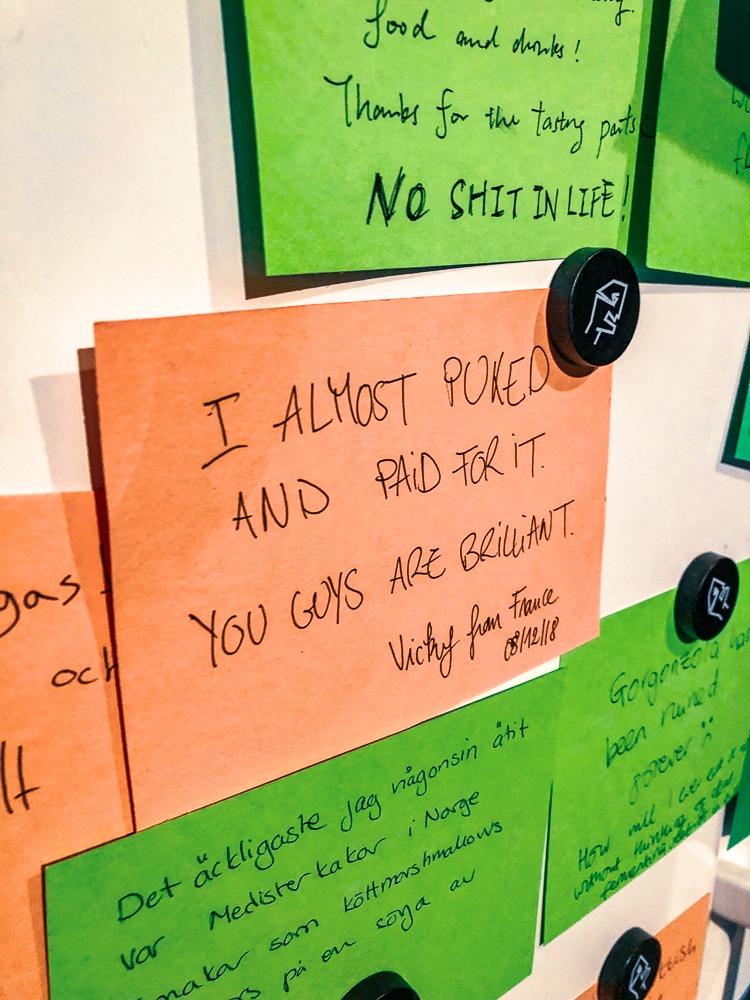 food and drinks!
Thanks for the tasting parts
NO SHIT IN LIFE!
I ALMOST PUKED
AND PAID FOR IT.
YOU GUYS ARE BRILLIANT.
Vicky from France
08/12/18
gas
och
lt
Gorgonzola has
been ruined
forever
How will I ever eat it
without thinking of
fermenting
Det äckligaste jag någonsin ätit
var Medisterkakor i Norge
smakar som köttmarshmallows
på en söya av